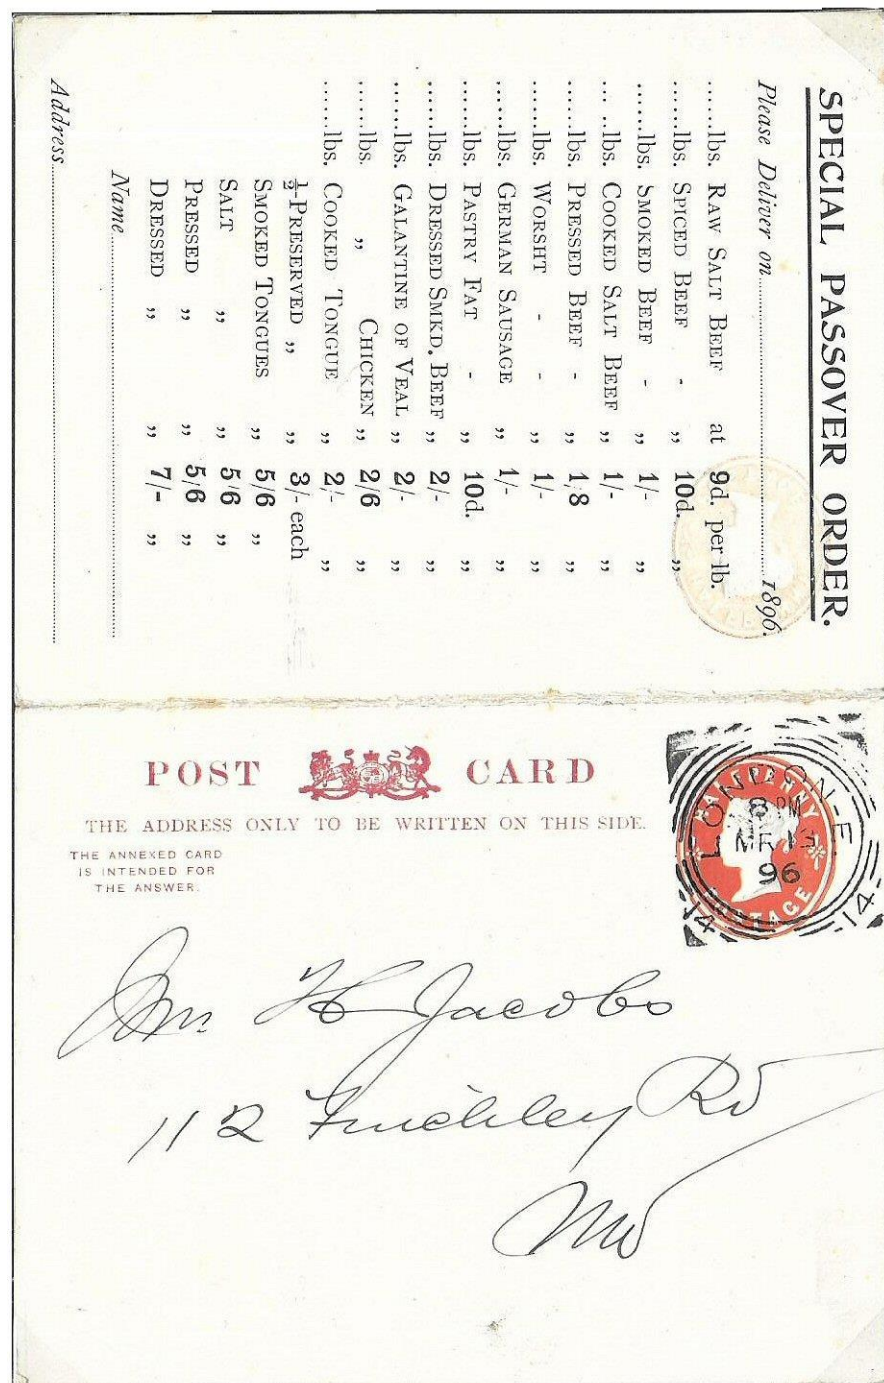 SPECIAL PASSOVER ORDER.
Please Deliver on..............................1896.
......lbs. RAW SALT BEEF at 9d. per lb.
......lbs. SPICED BEEF - „ 10d. „
......lbs. SMOKED BEEF - „ 1/- „
... ..lbs. COOKED SALT BEEF „ 1/- „
......lbs. PRESSED BEEF - „ 1/8 „
......lbs. WORSHT - - „ 1/- „
......lbs. GERMAN SAUSAGE „ 1/- „
......lbs. PASTRY FAT - „ 10d. „
......lbs. DRESSED SMKD. BEEF „ 2/- „
......lbs. GALANTINE OF VEAL „ 2/- „
......lbs. „ CHICKEN „ 2/6 „
......lbs. COOKED TONGUE „ 2/- „
½-PRESERVED „ „ 3/- each
SMOKED TONGUES „ 5/6 „
SALT „ „ 5/6 „
PRESSED „ „ 5/6 „
DRESSED „ „ 7/- „
Name..............................
Address..............................
POST CARD
THE ADDRESS ONLY TO BE WRITTEN ON THIS SIDE.
THE ANNEXED CARD
IS INTENDED FOR
THE ANSWER.
HALFPENNY
POSTAGE
LONDON-E.
8 PM
96
14 14
H Jacobs
112 Finchley Rd
NW